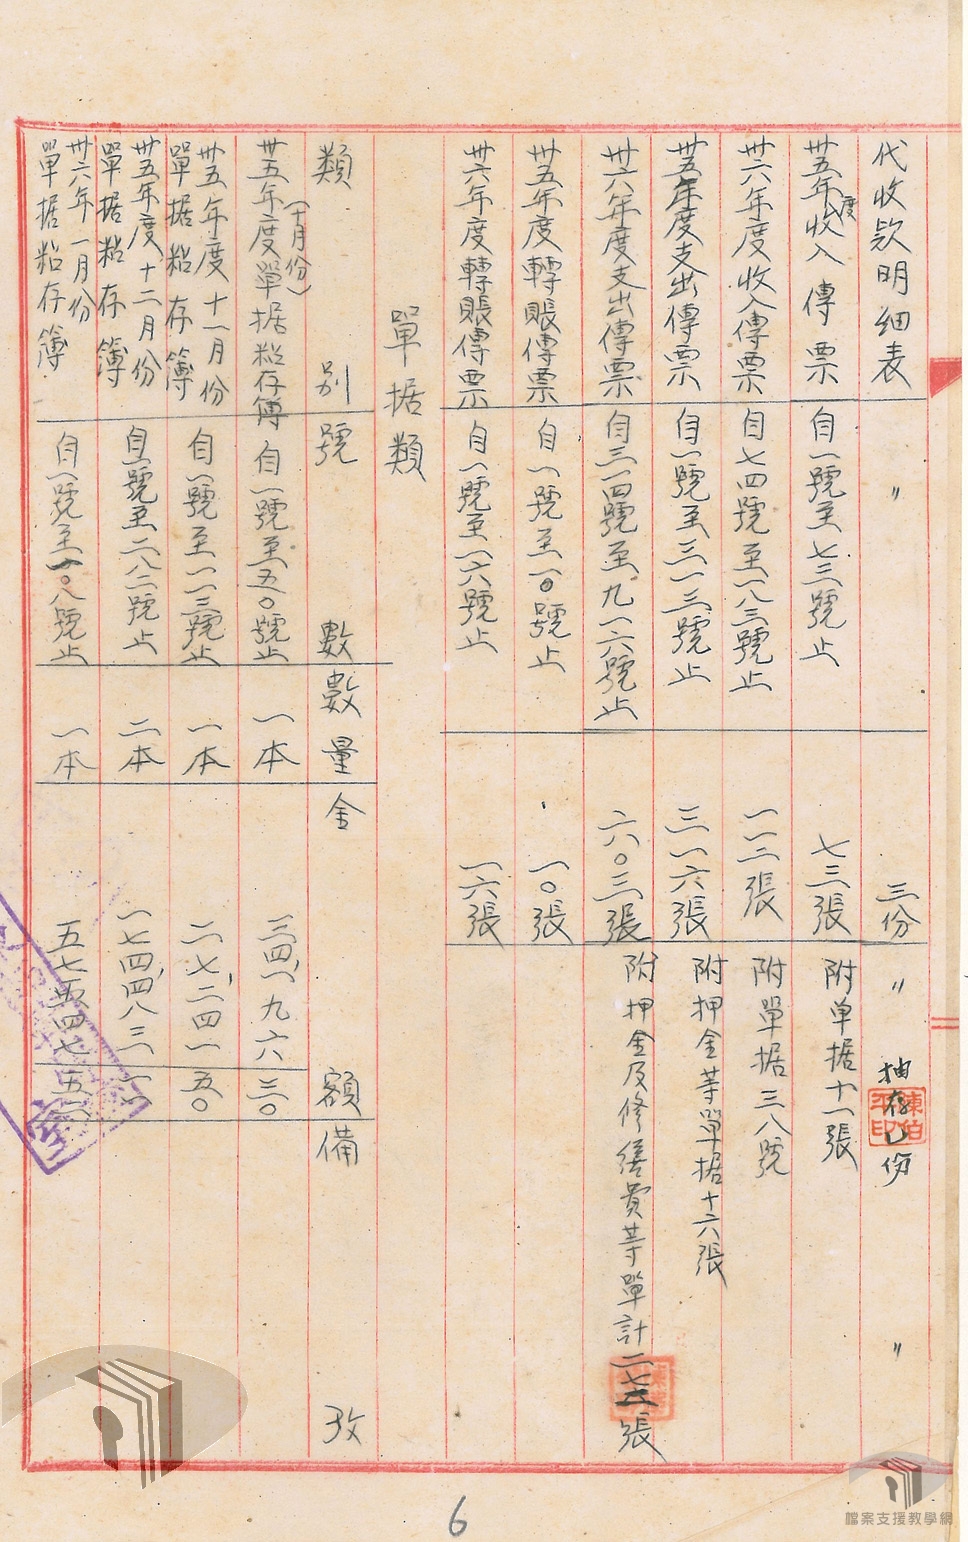 代收款明細表 〃 三份 〃 抽存乙份 〃
卅五年度收入傳票 自一號至七三號止 七三張 附单据十一張
卅六年度收入傳票 自七四號至一八三號止 一一二張 附單据三八號
卅五年度支出傳票 自一號至三一三號止 三一六張 附押金等單据十六張
卅六年度支出傳票 自三一四號至九一六號止 六〇三張 附押金及修繕費等單計二七五張
卅五年度轉賬傳票 自一號至一〇號止 一〇張
卅六年度轉賬傳票 自一號至一六號止 一六張
單据類
類別 號數 數量 金額 備攷
卅五年度(十月份)單据粘存簿 自一號至五〇號止 一本 三四、一九六 三〇
卅五年度十一月份
單据粘存簿 自一號至一一三號止 一本 二七、二四一 五〇
卅五年度十二月份
單据粘存簿 自一號至二八二號止 二本 一七四、四八三 一一
卅六年一月份
單据粘存簿 自一號至一〇八號止 一本 五七五四七 五一
陳伯平印
6
檔案支援教學網